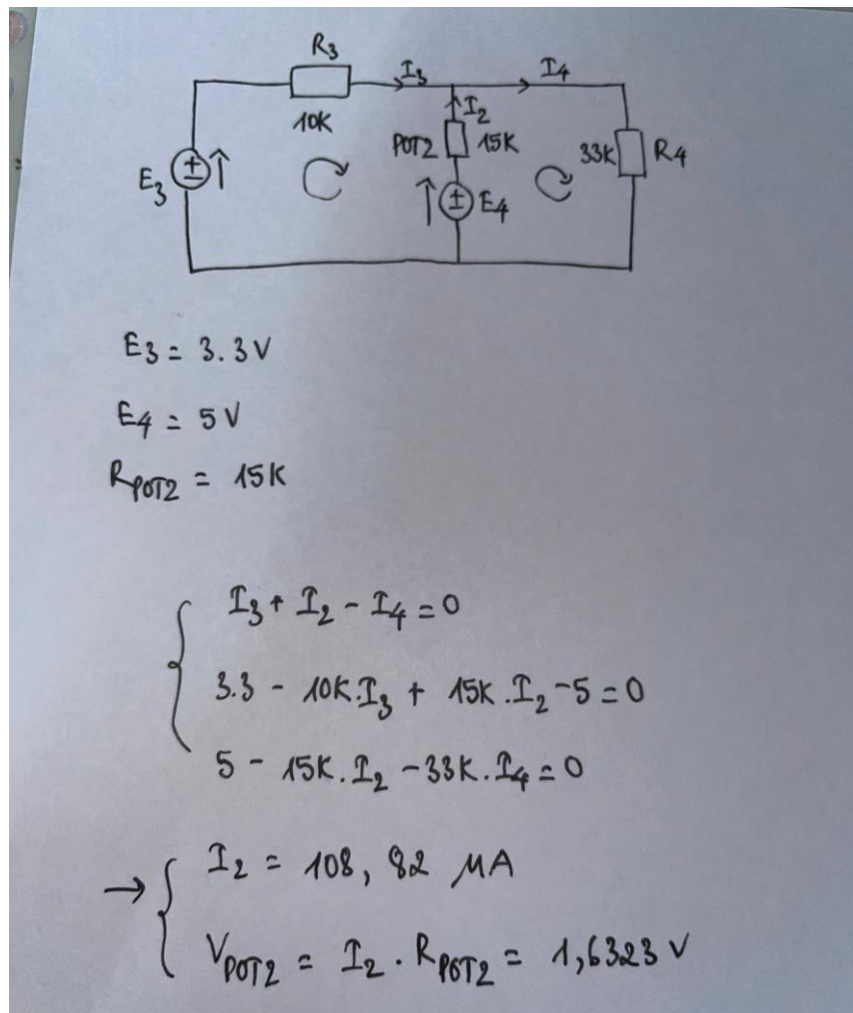 R3
I3
I4
10K
I2
POT2
15K
33K
R4
E3
E4
E3 = 3.3V
E4 = 5V
RPOT2 = 15K
I3 + I2 - I4 = 0
3.3 - 10K.I3 + 15K.I2 - 5 = 0
5 - 15K.I2 - 33K.I4 = 0
→ I2 = 108,82 μA
VPOT2 = I2 . RPOT2 = 1,6323 V